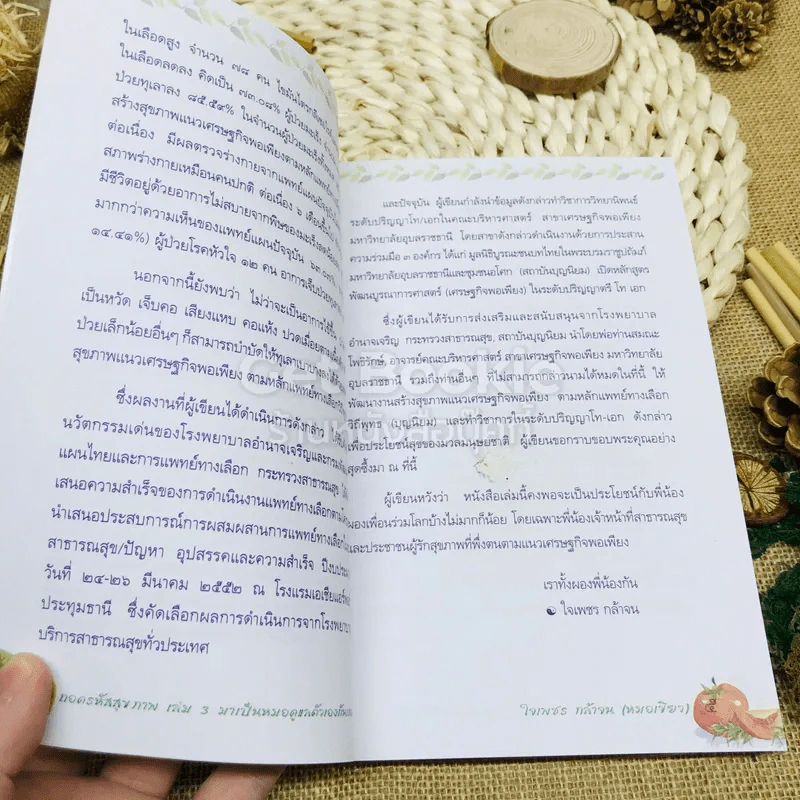 ในเลือดสูง จำนวน ๗๘ คน ไขมันไตรกลีเซอไรด์
ในเลือดลดลง คิดเป็น ๗๓.๐๘% ผู้ป่วยมะเร็ง
ป่วยทุเลาลง ๘๕.๕๙% ในจำนวนผู้ป่วยมะเร็งทั้งหมด
สร้างสุขภาพแนวเศรษฐกิจพอเพียงตามหลักแพทย์ทาง
ต่อเนื่อง มีผลตรวจร่างกายจากแพทย์แผนปัจจุบัน
สภาพร่างกายเหมือนคนปกติ ต่อเนื่อง ๖ เดือนขึ้นไป
มีชีวิตอยู่ด้วยอาการไม่สบายจากพิษของมะเร็งลดน้อยลง
มากกว่าความเห็นของแพทย์แผนปัจจุบัน
๑๔.๔๑%) ผู้ป่วยโรคหัวใจ ๑๒ คน อาการเจ็บป่วยทุเลา
นอกจากนี้ยังพบว่า ไม่ว่าจะเป็นอาการไข้ขึ้น
เป็นหวัด เจ็บคอ เสียงแหบ คอแห้ง ปวดเมื่อยตาม
ป่วยเล็กน้อยอื่นๆ ก็สามารถบำบัดให้ทุเลาเบาบางลงได้
สุขภาพแนวเศรษฐกิจพอเพียง ตามหลักแพทย์ทางเลือก
ซึ่งผลงานที่ผู้เขียนได้ดำเนินการดังกล่าว
นวัตกรรมเด่นของโรงพยาบาลอำนาจเจริญและกรม
แผนไทยและการแพทย์ทางเลือก กระทรวงสาธารณสุข
เสนอความสำเร็จของการดำเนินงานแพทย์ทางเลือก
นำเสนอประสบการณ์การผสมผสานการแพทย์ทางเลือก
สาธารณสุข/ปัญหา อุปสรรคและความสำเร็จ ปีงบประ
วันที่ ๒๔-๒๖ มีนาคม ๒๕๕๒ ณ โรงแรมเอเชียแอร์พ
ปทุมธานี ซึ่งคัดเลือกผลการดำเนินการจากโรงพยาบา
บริการสาธารณสุขทั่วประเทศ
ถอดรหัสสุขภาพ เล่ม 3 มาเป็นหมอดูแลตัวเองกัน
และปัจจุบัน ผู้เขียนกำลังนำข้อมูลดังกล่าวทำวิชาการวิทยานิพนธ์
ระดับปริญญาโท/เอกในคณะบริหารศาสตร์ สาขาเศรษฐกิจพอเพียง
มหาวิทยาลัยอุบลราชธานี โดยสาขาดังกล่าวดำเนินงานด้วยการประสาน
ความร่วมมือ ๓ องค์กร ได้แก่ มูลนิธิบูรณะชนบทไทยในพระบรมราชูปถัมภ์
มหาวิทยาลัยอุบลราชธานีและชุมชนอโศก (สถาบันบุญนิยม) เปิดหลักสูตร
พัฒนบูรณาการศาสตร์ (เศรษฐกิจพอเพียง) ในระดับปริญญาตรี โท เอก
ซึ่งผู้เขียนได้รับการส่งเสริมและสนับสนุนจากโรงพยาบาล
อำนาจเจริญ กระทรวงสาธารณสุข, สถาบันบุญนิยม นำโดยพ่อท่านสมณะ
โพธิรักษ์, อาจารย์คณะบริหารศาสตร์ สาขาเศรษฐกิจพอเพียง มหาวิทยาลัย
อุบลราชธานี รวมถึงท่านอื่นๆ ที่ไม่สามารถกล่าวนามได้หมดในที่นี้ ให้
พัฒนางานสร้างสุขภาพแนวเศรษฐกิจพอเพียง ตามหลักแพทย์ทางเลือก
วิถีพุทธ (บุญนิยม) และทำวิชาการในระดับปริญญาโท-เอก ดังกล่าว
เพื่อประโยชน์สุขของมวลมนุษยชาติ ผู้เขียนขอกราบขอบพระคุณอย่าง
สุดซึ้งมา ณ ที่นี้
ผู้เขียนหวังว่า หนังสือเล่มนี้คงพอจะเป็นประโยชน์กับพี่น้อง
ผองเพื่อนร่วมโลกบ้างไม่มากก็น้อย โดยเฉพาะพี่น้องเจ้าหน้าที่สาธารณสุข
และประชาชนผู้รักสุขภาพที่พึ่งตนตามแนวเศรษฐกิจพอเพียง
เราทั้งผองพี่น้องกัน
ใจเพชร กล้าจน
ใจเพชร กล้าจน (หมอเขียว)
Get Bookie
ร้านหนังสือกุ๊กกี้